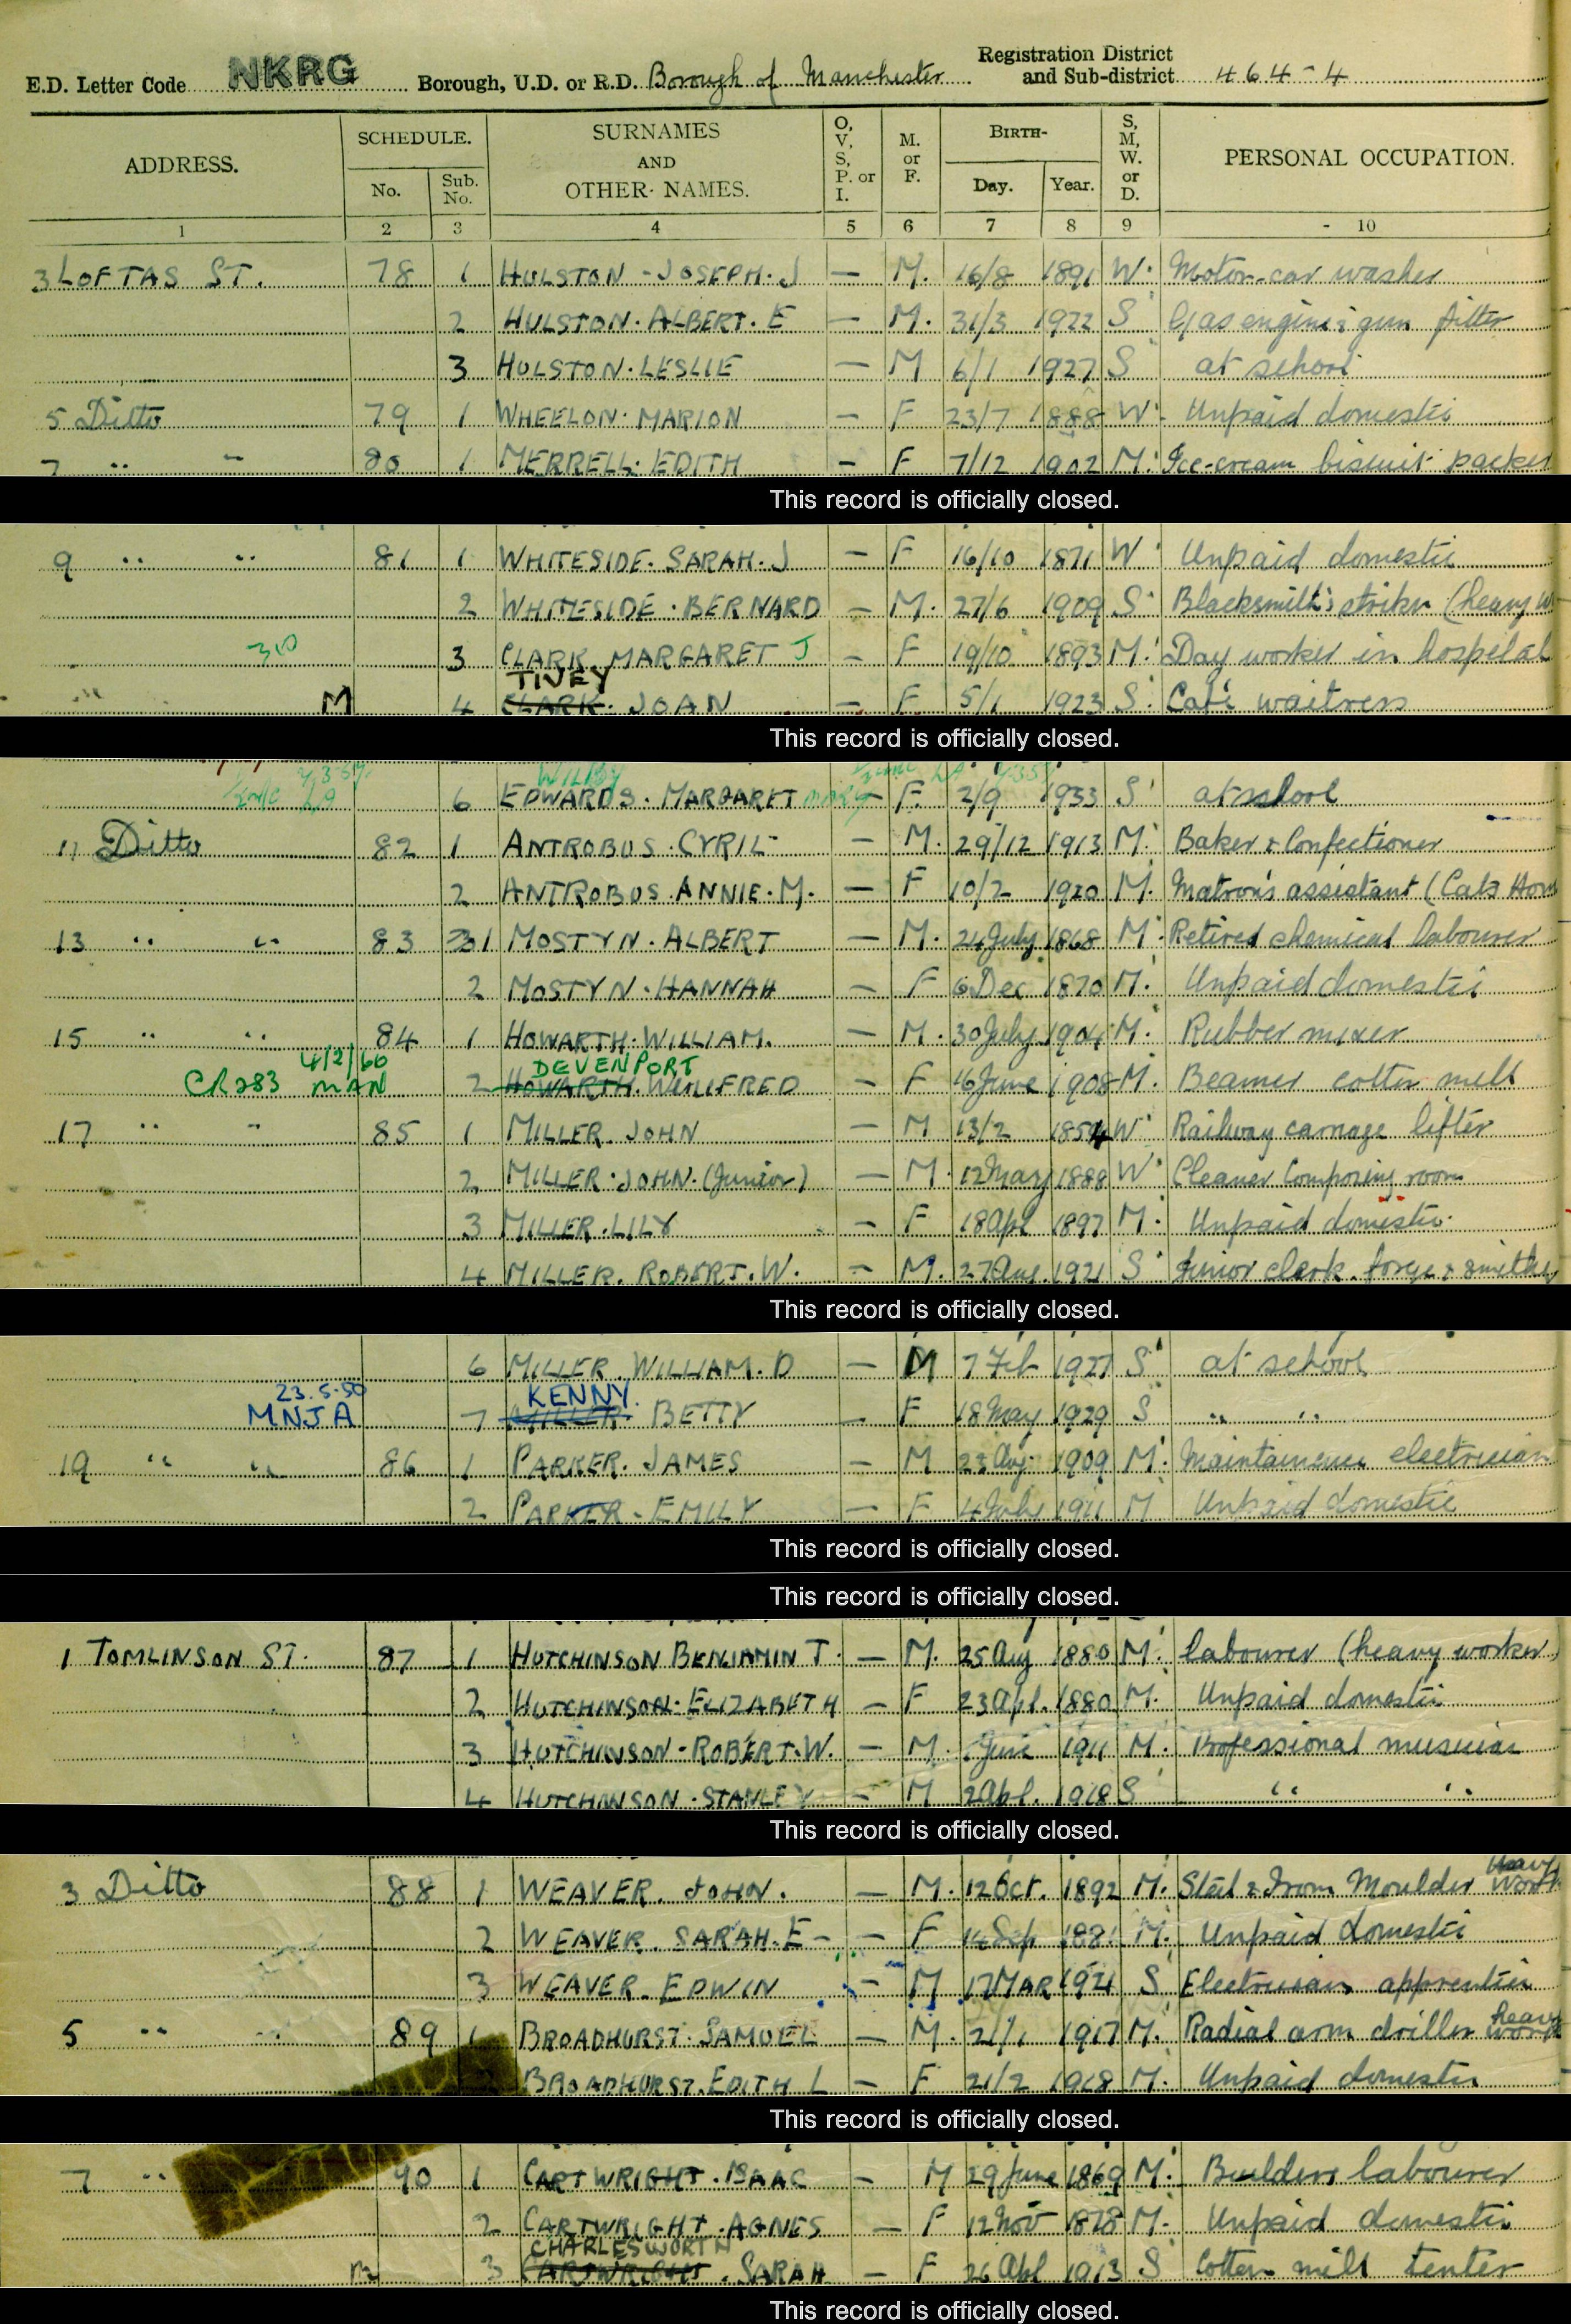 E.D. Letter Code NKRG Borough, U.D. or R.D. Borough of Manchester Registration District and Sub-district 464-4
ADDRESS. SCHEDULE. No. Sub. No. SURNAMES AND OTHER NAMES. O, V, S, P. or I. M. or F. BIRTH- Day. Year. S, M, W. or D. PERSONAL OCCUPATION.
1 2 3 4 5 6 7 8 9 - 10
3 LOFTAS ST. 78 1 HULSTON - JOSEPH. J — M. 16/8 1891 W. Motor-car washer
2 HULSTON. ALBERT. E — M. 31/3 1922 S Gas engine & gun fitter
3 HULSTON. LESLIE — M 6/1 1927 S at school
5 Ditto 79 1 WHEELON. MARION — F 23/7 1888 W. Unpaid domestic
7 " " 80 1 MERRELL. EDITH — F 7/12 1902 M. Ice-cream biscuit packer
This record is officially closed.
9 " " 81 1 WHITESIDE. SARAH. J — F 16/10 1871 W. Unpaid domestic
2 WHITESIDE. BERNARD — M. 27/6 1909 S. Blacksmith's striker (heavy w
3 CLARK. MARGARET J — F 19/10 1893 M. Day worker in hospital
TIVEY
M 4 CLARK. JOAN — F 5/1 1923 S. Café waitress
This record is officially closed.
WILBY
6 EDWARDS. MARGARET MARY — F. 2/9 1933 S at school
11 Ditto 82 1 ANTROBUS. CYRIL — M. 29/12 1913 M. Baker & Confectioner
2 ANTROBUS. ANNIE. M. — F 10/2 1920 M. Matron's assistant (Cats Hom
13 " " 83 1 MOSTYN. ALBERT — M. 24 July 1868 M. Retired chemical labourer
2 MOSTYN. HANNAH — F 6 Dec 1870 M. Unpaid domestic
15 " " 84 1 HOWARTH. WILLIAM. — M. 30 July 1904 M. Rubber mixer
4/2/60 DEVENPORT
CR283 MAN 2 HOWARTH. WINIFRED — F 16 June 1908 M. Beamer cotton mill
17 " " 85 1 MILLER. JOHN — M 13/2 1854 W. Railway carriage lifter
2 MILLER. JOHN. (Junior) — M. 12 May 1888 W. Cleaner Composing room
3 MILLER. LILY — F 18 Apl 1897 M. Unpaid domestic
4 MILLER. ROBERT. W. — M. 27 Aug. 1921 S Junior clerk. forge & smithy
This record is officially closed.
6 MILLER. WILLIAM. D — M 7 Feb 1927 S at school
23.5.50 KENNY.
MNJA 7 MILLER. BETTY — F 18 May 1929 S " "
19 " " 86 1 PARKER. JAMES — M 23 Aug. 1909 M. Maintenance electrician
2 PARKER. EMILY — F 4 July 1911 M Unpaid domestic
This record is officially closed.
This record is officially closed.
1 TOMLINSON ST. 87 1 HUTCHINSON BENJAMIN T. — M. 25 Aug 1880 M. Labourer (heavy worker)
2 HUTCHINSON. ELIZABETH — F 23 Apl. 1880 M. Unpaid domestic
3 HUTCHINSON - ROBERT. W. — M. June 1911 M. Professional musician
4 HUTCHINSON. STANLEY — M 2 Apl. 1918 S " "
This record is officially closed.
3 Ditto 88 1 WEAVER. JOHN. — M. 12 Oct. 1892 M. Steel & Iron Moulder heavy work
2 WEAVER. SARAH. E — F 14 Sep 1881 M. Unpaid domestic
3 WEAVER. EDWIN — M 17 MAR 1921 S Electrician apprentice
5 " " 89 1 BROADHURST. SAMUEL — M. 21/1 1917 M. Radial arm driller heavy work
BROADHURST. EDITH L — F 21/2 1918 M. Unpaid domestic
This record is officially closed.
7 " 90 1 CARTWRIGHT. ISAAC — M 29 June 1869 M. Builders labourer
2 CARTWRIGHT. AGNES — F 12 Nov 1878 M. Unpaid domestic
CHARLESWORTH
m 3 CARTWRIGHT. SARAH — F 26 Apl 1913 S Cotton mill tenter
This record is officially closed.